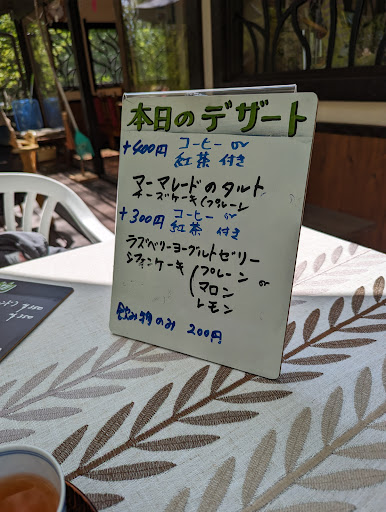 本日のデザート
+400円 コーヒー or
紅茶 付き
マーマレードのタルト
チーズケーキ(プレーン
+300円 コーヒー or
紅茶 付き
ラズベリーヨーグルトゼリー
シフォンケーキ(プレーン or
マロン
レモン
飲み物のみ 200円